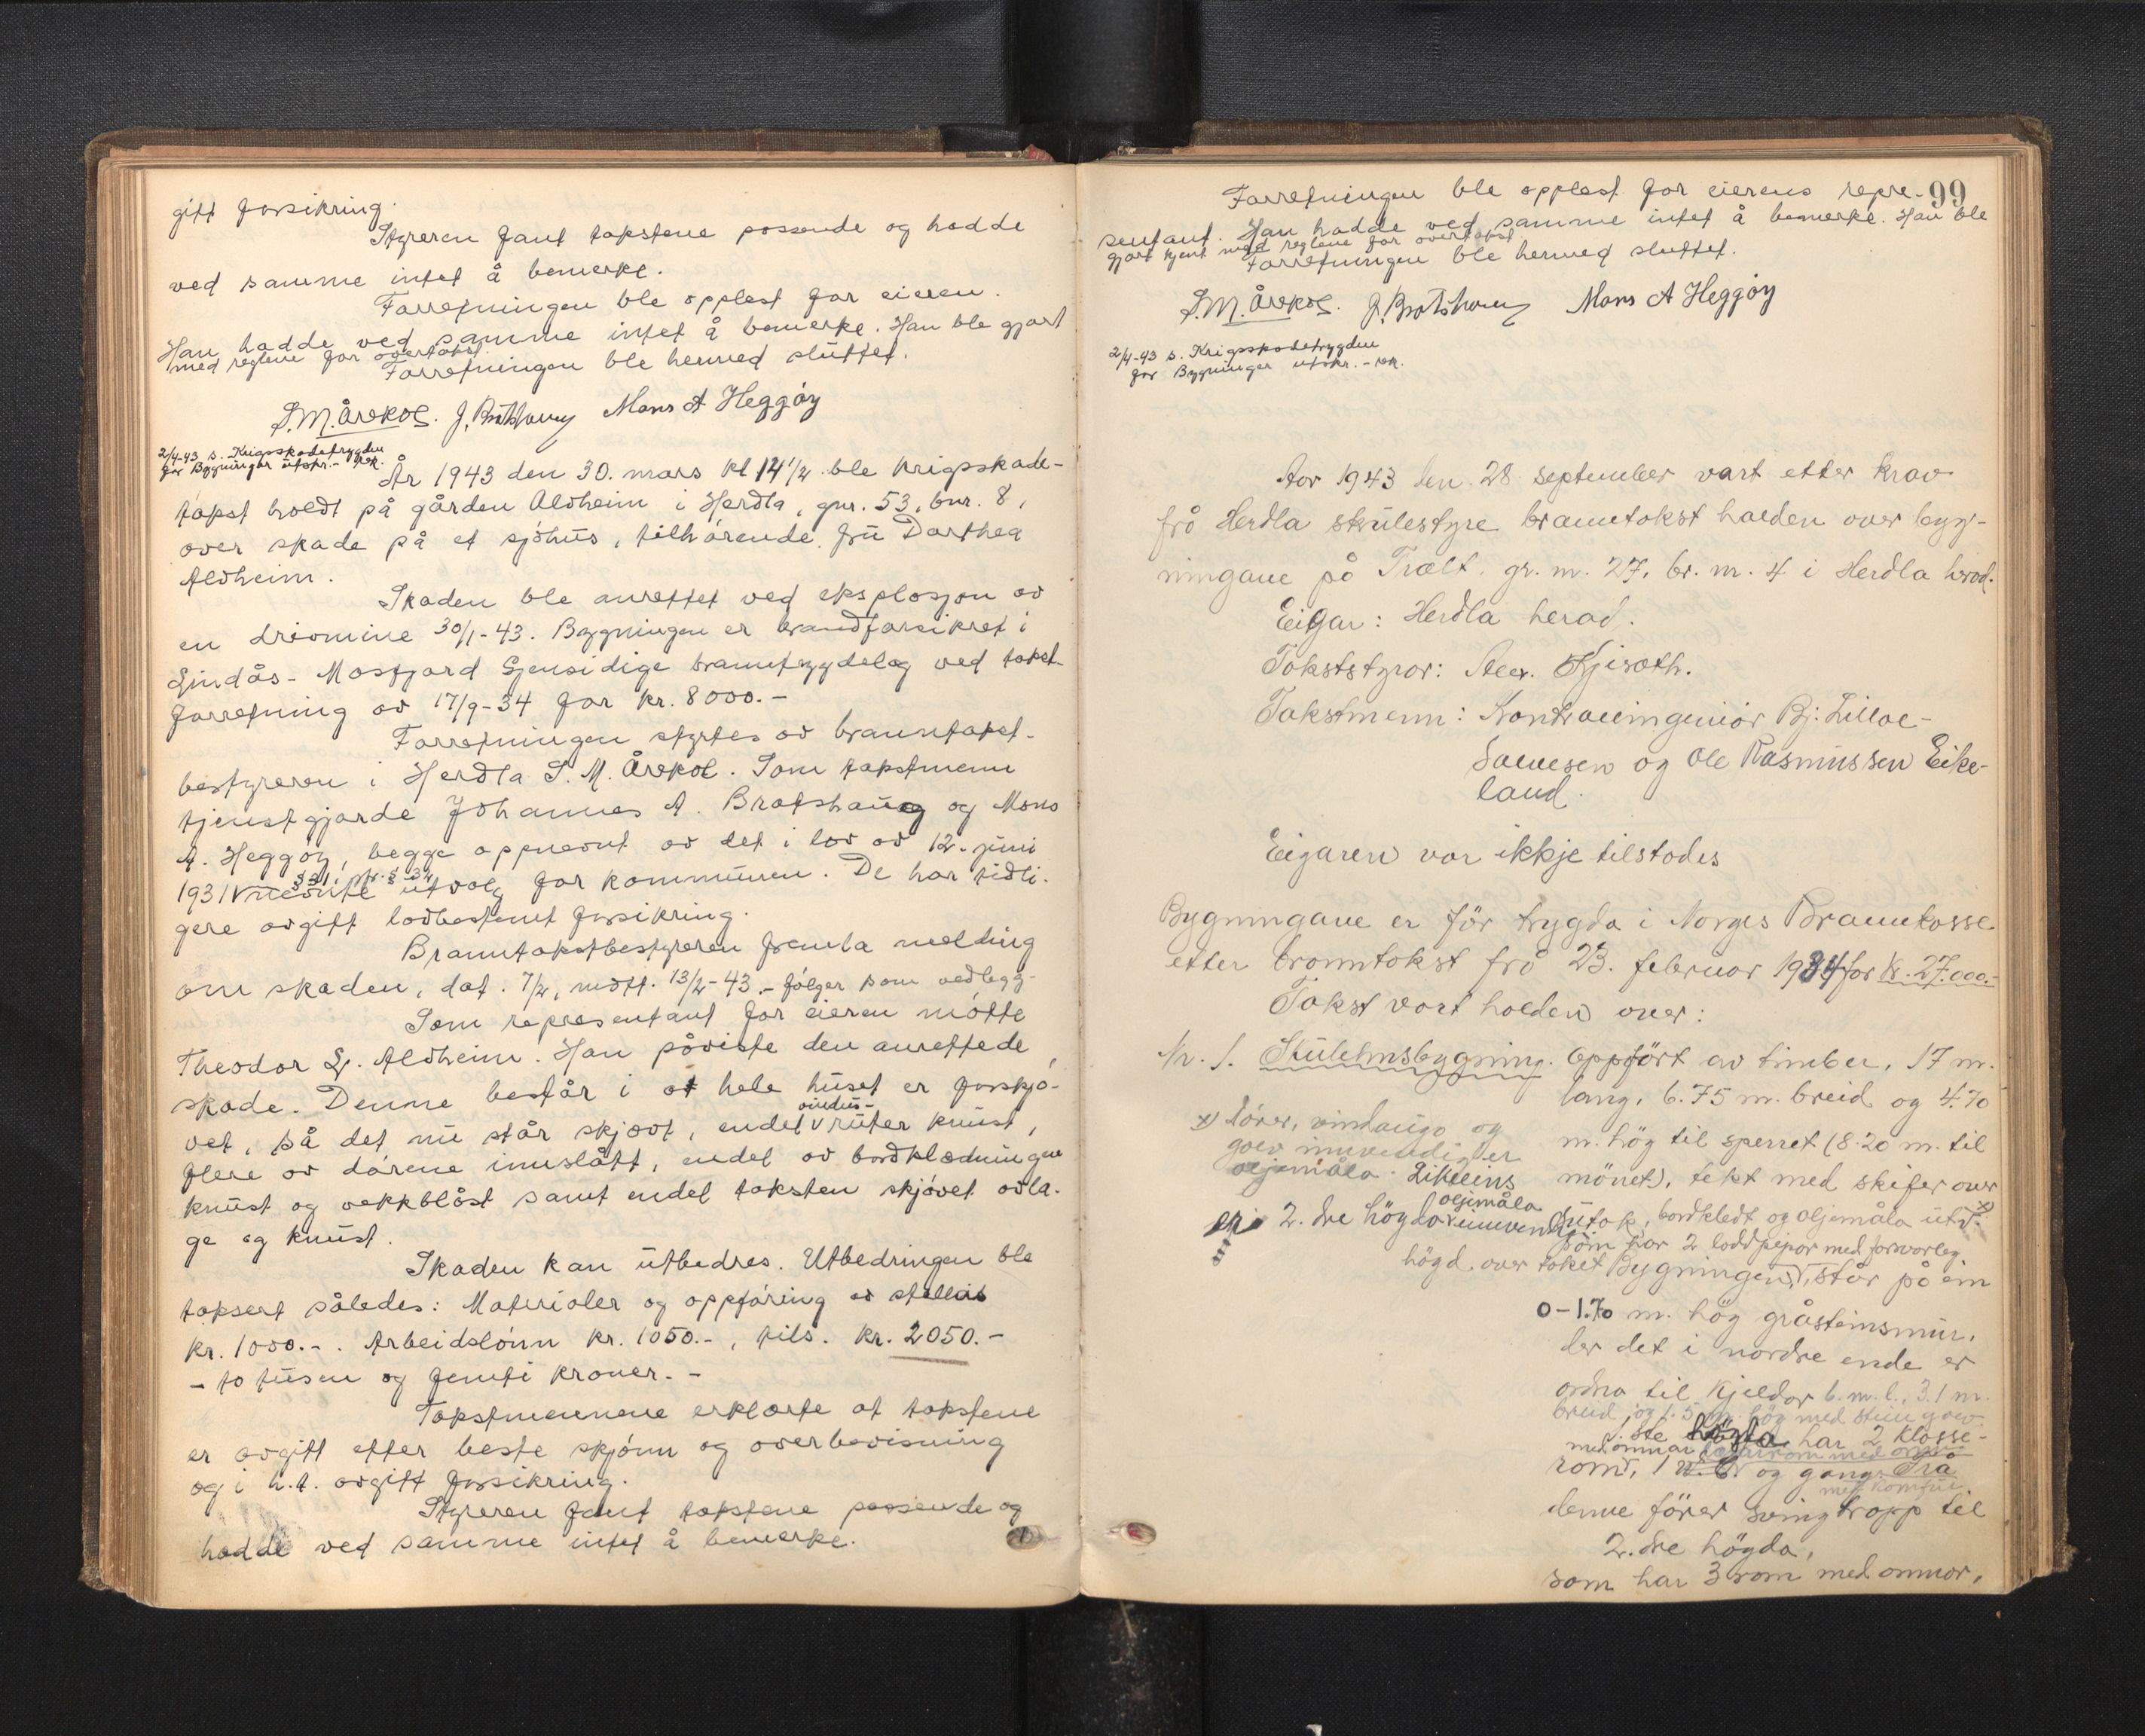 gitt forsikring.
Styreren fant takstene passende og hadde
ved samme intet å bemerke.
Forretningen ble opplest for eieren.
Han hadde ved samme intet å bemerke. Han ble gjort
med reglene for overtakst.
Forretningen ble hermed sluttet.
S.M. Årskog. J. Bratshaug Mons A Heggøy
2/4-43 s. Krigsskadetrygden
for Bygninger utskr. -
År 1943 den 30. mars kl 14 1/2 ble krigsskade-
takst holdt på gården Aldheim i Herdla, gnr. 53, bnr. 8,
over skade på et sjøhus, tilhørende fru Dorthea
Aldheim.
Skaden ble anrettet ved eksplosjon av
en drivmine 30/1-43. Bygningen er brandforsikret i
Lindås-Masfjord Gjensidige branntrygdelag ved takst-
forretning av 17/9-34 for kr. 8000.-
Forretningen styrtes av branntakst-
bestyreren i Herdla S. M. Årskog. Som takstmenn
tjenstgjorde Johannes A. Bratshaug og Mons
A. Heggøy, begge oppnevnt av det i lov av 12. juni
1931 § 31, jfr. § 34
nevnte utvalg for kommunen. De har tidli-
gere avgitt lovbestemt forsikring.
Branntakstbestyreren fremla melding
om skaden, dat. 7/2, mott. 13/2-43. - følger som vedlegg-
Som representant for eieren møtte
Theodor L. Aldheim. Han påviste den anrettede
skade. Denne består i at hele huset er forskjø-
vet, så det nu står skjevt, endel vindus-
ruter knust,
flere av dørene innslått, endel av bordklædningen
knust og vekkblåst samt endel taksten skjøvet avla-
ge og knust.
Skaden kan utbedres. Utbedringen ble
taksert således: Materialer og oppføring av stillas
kr. 1000.- . Arbeidslønn kr. 1050.- , tils. kr. 2050.-
- to tusen og femti kroner. -
Takstmennene erklærte at takstene
er avgitt etter beste skjønn og overbevisning
og i h.t. avgitt forsikring.
Styreren fant takstene passende og
hadde ved samme intet å bemerke.
99
Forretningen ble opplest for eierens repre-
sentant. Han hadde ved samme intet å bemerke. Han ble
gjort kjent med reglene for overtakst
Forretningen ble hermed sluttet.
S.M. Årskog. J. Bratshaug Mons A Heggøy
2/4-43 s. Krigsskadetrygden
for Bygninger utskr. -
Aar 1943 den 28 september vart etter krav
frå Herdla skulestyre branntakst halden over byg-
ningane på Trælt. gr. nr. 27, br. nr. 4 i Herdla herad.
Eigar: Herdla herad.
Takststyrar: Alex. Kjiræth.
Takstmenn: Kontrollingeniør Bj: Lilloe-
Salvesen og Ole Rasmussen Eike-
land.
Eigaren var ikkje tilstades
Bygningane er før trygda i Norges Brannkasse
etter branntakst frå 23. februar 1934 for kr. 27.000.-
Takst vart halden over:
Nr. 1. Skulehusbygning. Oppført av timber, 17 m.
lang, 6.75 m. breid og 4.70
m. høg til sperret (8.20 m. til
mønet), tekt med skifer over
sutak, bordkledt og oljemåla utv. x)
x) Dører, vindaugo og
golv innvendig er
oljemåla. Likeleins
er i 2. dre høgda oljemåla
innvendig
som har 2 loddpipor med forvarleg
høgd over taket Bygningen, står på ein
0-1.70 m. høg gråsteinsmur,
der det i nordre ende er
ordna til kjeldar 6 m. l., 3.1 m.
breid og 1.5 m. høg med stein golv.
1. ste høgda har 2 klasse-
rom, med omnar 1 og gang. Frå
denne fører svingtrapp til
2. dre høgda,
som har 3 rom med omnar,